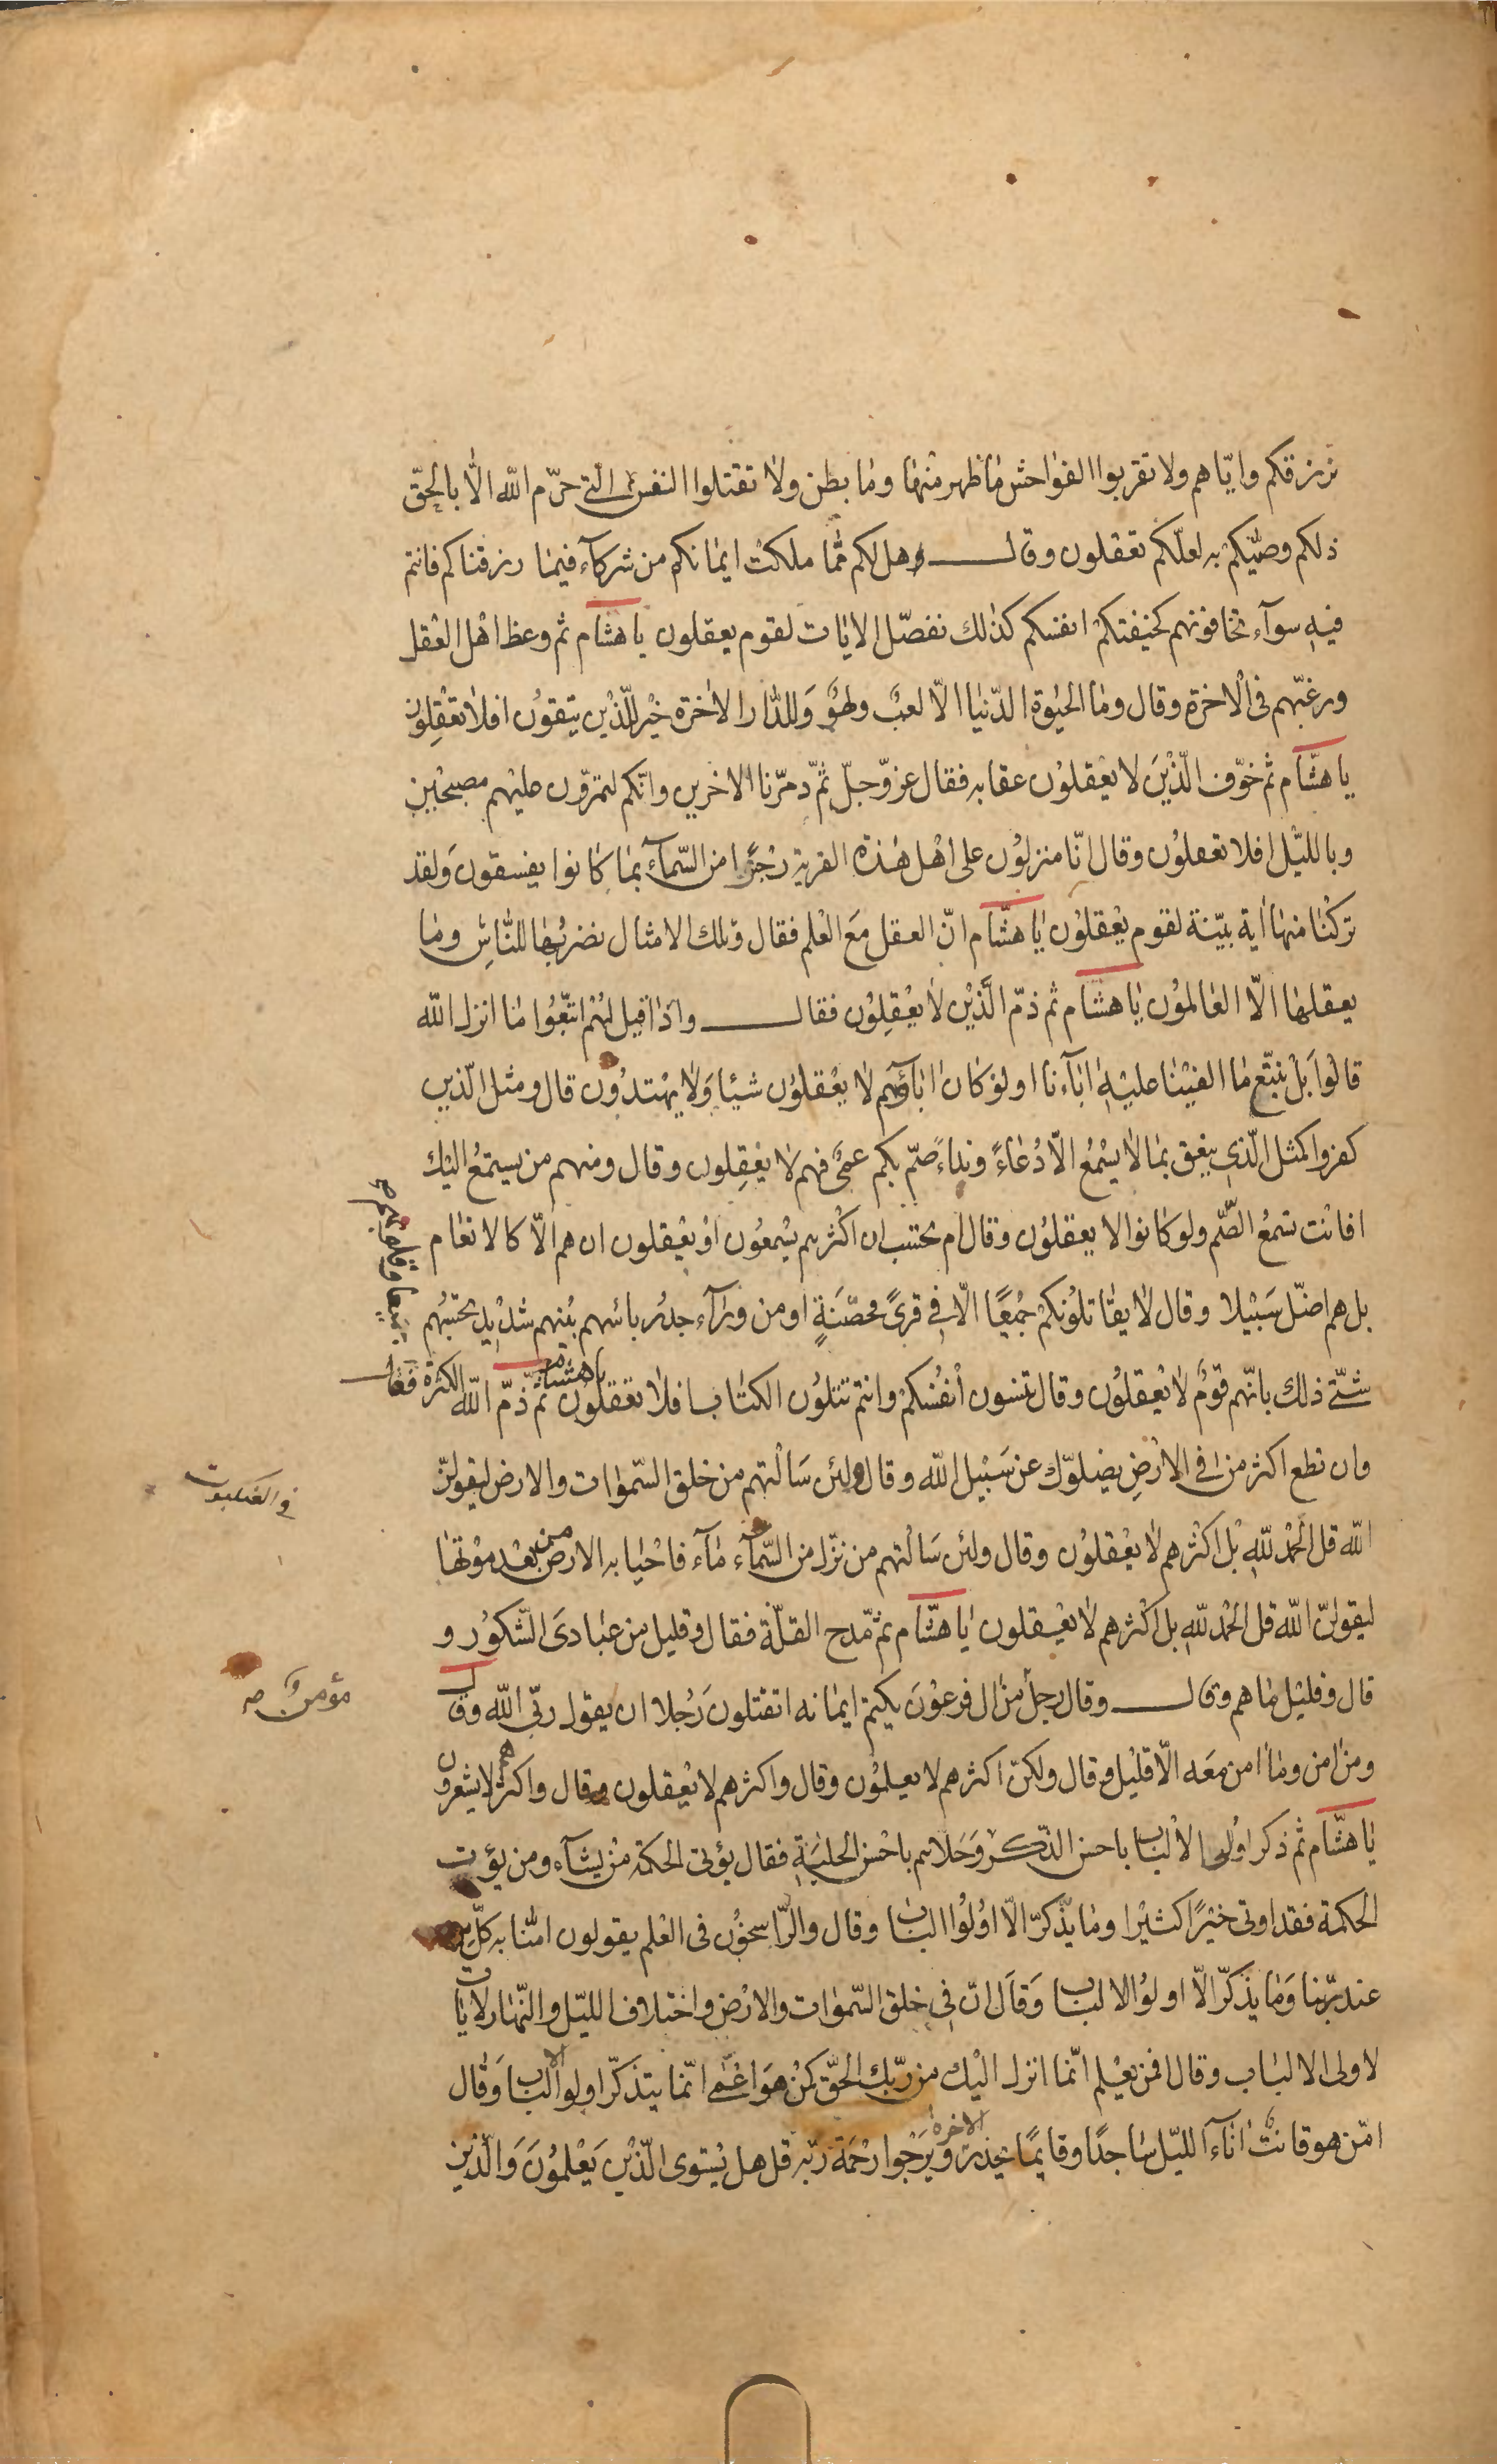 نرزقكم وايّاهم ولا تقربوا الفواحش ما ظهر منها وما بطن ولا تقتلوا النفس الّتي حرّم اللّه الّا بالحقّ
ذلكم وصّيكم به لعلّكم تعقلون وقال هل لكم ممّا ملكت ايمانكم من شركآء فيما رزقناكم فانتم
فيه سوآء تخافونهم كخيفتكم انفسكم كذلك نفصّل الايات لقوم يعقلون يا هشام ثم وعظ اهل العقل
ورغّبهم في الاخرة وقال وما الحيوة الدّنيا الّا لعبٌ ولهوٌ وَللدّار الاخرة خيْر للّذيْن يتّقوْن افلا تعْقِلون
يا هشّام ثم خوّف الّذيْنَ لا يعْقلوْن عقابه فقال عزّ وجلّ ثمّ دمّرنا الاخرين وانّكم لتمرّون عليْهم مصبحيْن
وباللّيْل افلا تعقلوْن وقال انّا منزلوْن على اهْل هذه القرية رجْزًا من السّمآء بما كانوا يفسقون وَلقد
تركْنا منها اية بيّنة لقوم يعْقلوْن يا هشّام انّ العقل مَع العْلم فقال وتلك الامثال نضربُها للنّاسِ وما
يعقلها الّا العالموْن يا هشام ثم ذمّ الَّذيْن لا يعْقِلوْن فقال واذا قيل لهُم اتّبُعوا ما انزل اللّه
قالوْا بَلْ نتّبع ما الفيْنا عليْه اباءنا اولوْ كان اباؤهم لا يعْقلوْن شيئا وَلا يهْتدُون قال ومثل الّذين
كفروا كمثل الّذي ينعق بما لا يسْمعُ الّا دُعاءً ونداءً صمّ بكم عمىٌ فهم لا يعْقِلون وقال ومنهم من يستمعُ اليْك
افانْت تسمعُ الصّم ولو كانوا لا يعقلوْن وقال ام تحسب ان اكْثرهم يسْمعُون اوْ يعْقلون ان هم الّا كالانعام
بل هم اضلّ سَبيْلا وقال لا يقاتلوُنكمْ جميْعًا الّا في قرىً محصّنَةٍ او من ورآء جدُر بائسهم بيْنهم شديْد تحسبُهم
جميعا وقلوبهم
شتّى ذلك بانّهم قوْمٌ لا يعْقلوْن وقال تنسون أنفُسكمْ وانتم تتلوْن الكتاب افلا تعْقلوْن يا هشام ثمّ ذمّ اللّه الكثرة فقال
وان تطع اكثر من في الارْضِ يضلوّك عن سَبيْل اللّه وقال ولئن سَالْتهم من خلق السّموات والارض ليقولنّ
في العنكبوت
اللّه قل الحمْد للّه بلْ اكْثرهم لا يعْقلوْن وقال ولئن سَالْتهم من نزّل من السّمآء مآء فاحْيا به الارض من بعْد موْتها
ليقولنّ اللّه قل الحمْد للّه بل اكْثرهم لا يعْقلون يا هشّام ثمّ مدح القلّة فقال وقليل من عبادىَ الشّكوْر و
قال وقليْل ما هم وقال وقال رجل من ال فرعوْن يكتم ايمانه اتقتلون رَجُلا ان يقول ربّى اللّه وقال
مؤمنٌ صه
ومن امن وما امن معَه الّا قليْل وقال ولكنّ اكثرهم لا يعلموْن وقال واكثرهم لا يعْقلون وقال واكثرهم لا يشعرون
يا هشّام ثم ذكر اوْلى الاْلباب باحسن الذّكر وَحَلاهم باحْسن الحلْيَةِ فقال يؤتى الحكمة منْ يشآء ومن يؤت
الحكمة فقد اوتى خيْرًا كثيْرا وما يذّكرّ الّا اوْلوْا الباب وقال والرّاسخوْن فى العْلم يقولون امنّا به كلّ من
عند ربّنا وَما يذّكّر الّا اولوْا الالباب وَقالَ انّ في خلق السّموات والارْض واختلاف اللّيْل والنّهار لايات
لاولى الالباب وقال افمن يعْلم انّما انزل اليْك من ربّك الحقّ كمنْ هوَ اعْمى انّما يتذكّر اولوا الالباب وَقال
امّن هو قانت اناآء اللّيْل ساجدًا وقايمًا يحذر الاخرة ويرْجوا رحْمَة ربّه قل هل يسْتوى الّذيْن يَعْلموُنَ وَالّذين